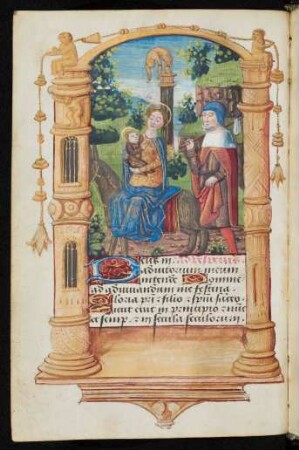 Deus in Ad vesperas.
adiutorium meum
intende Domine
ad adiuvandum me festina.
Gloria pri filio spui sancto.
Sicut erat in principio nunc
semp in secula seculorum.